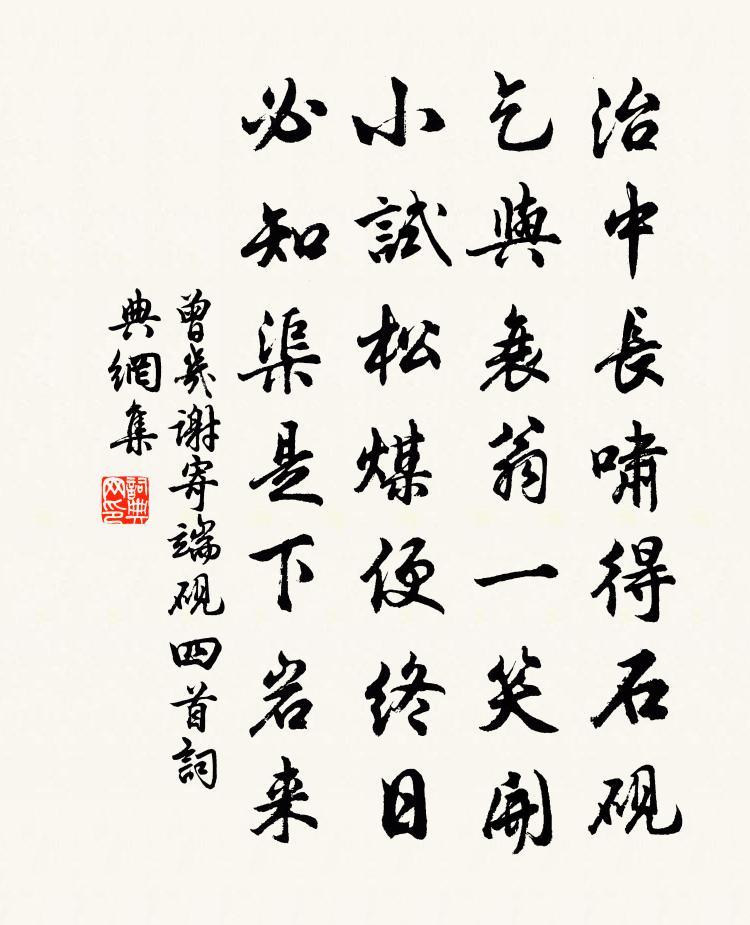 治中長嘯得石硯
乞與衰翁一笑開
小試松煤便終日
必知渠是下岩来
曾幾謝寄端硯四首詞
典網集
詞典网印